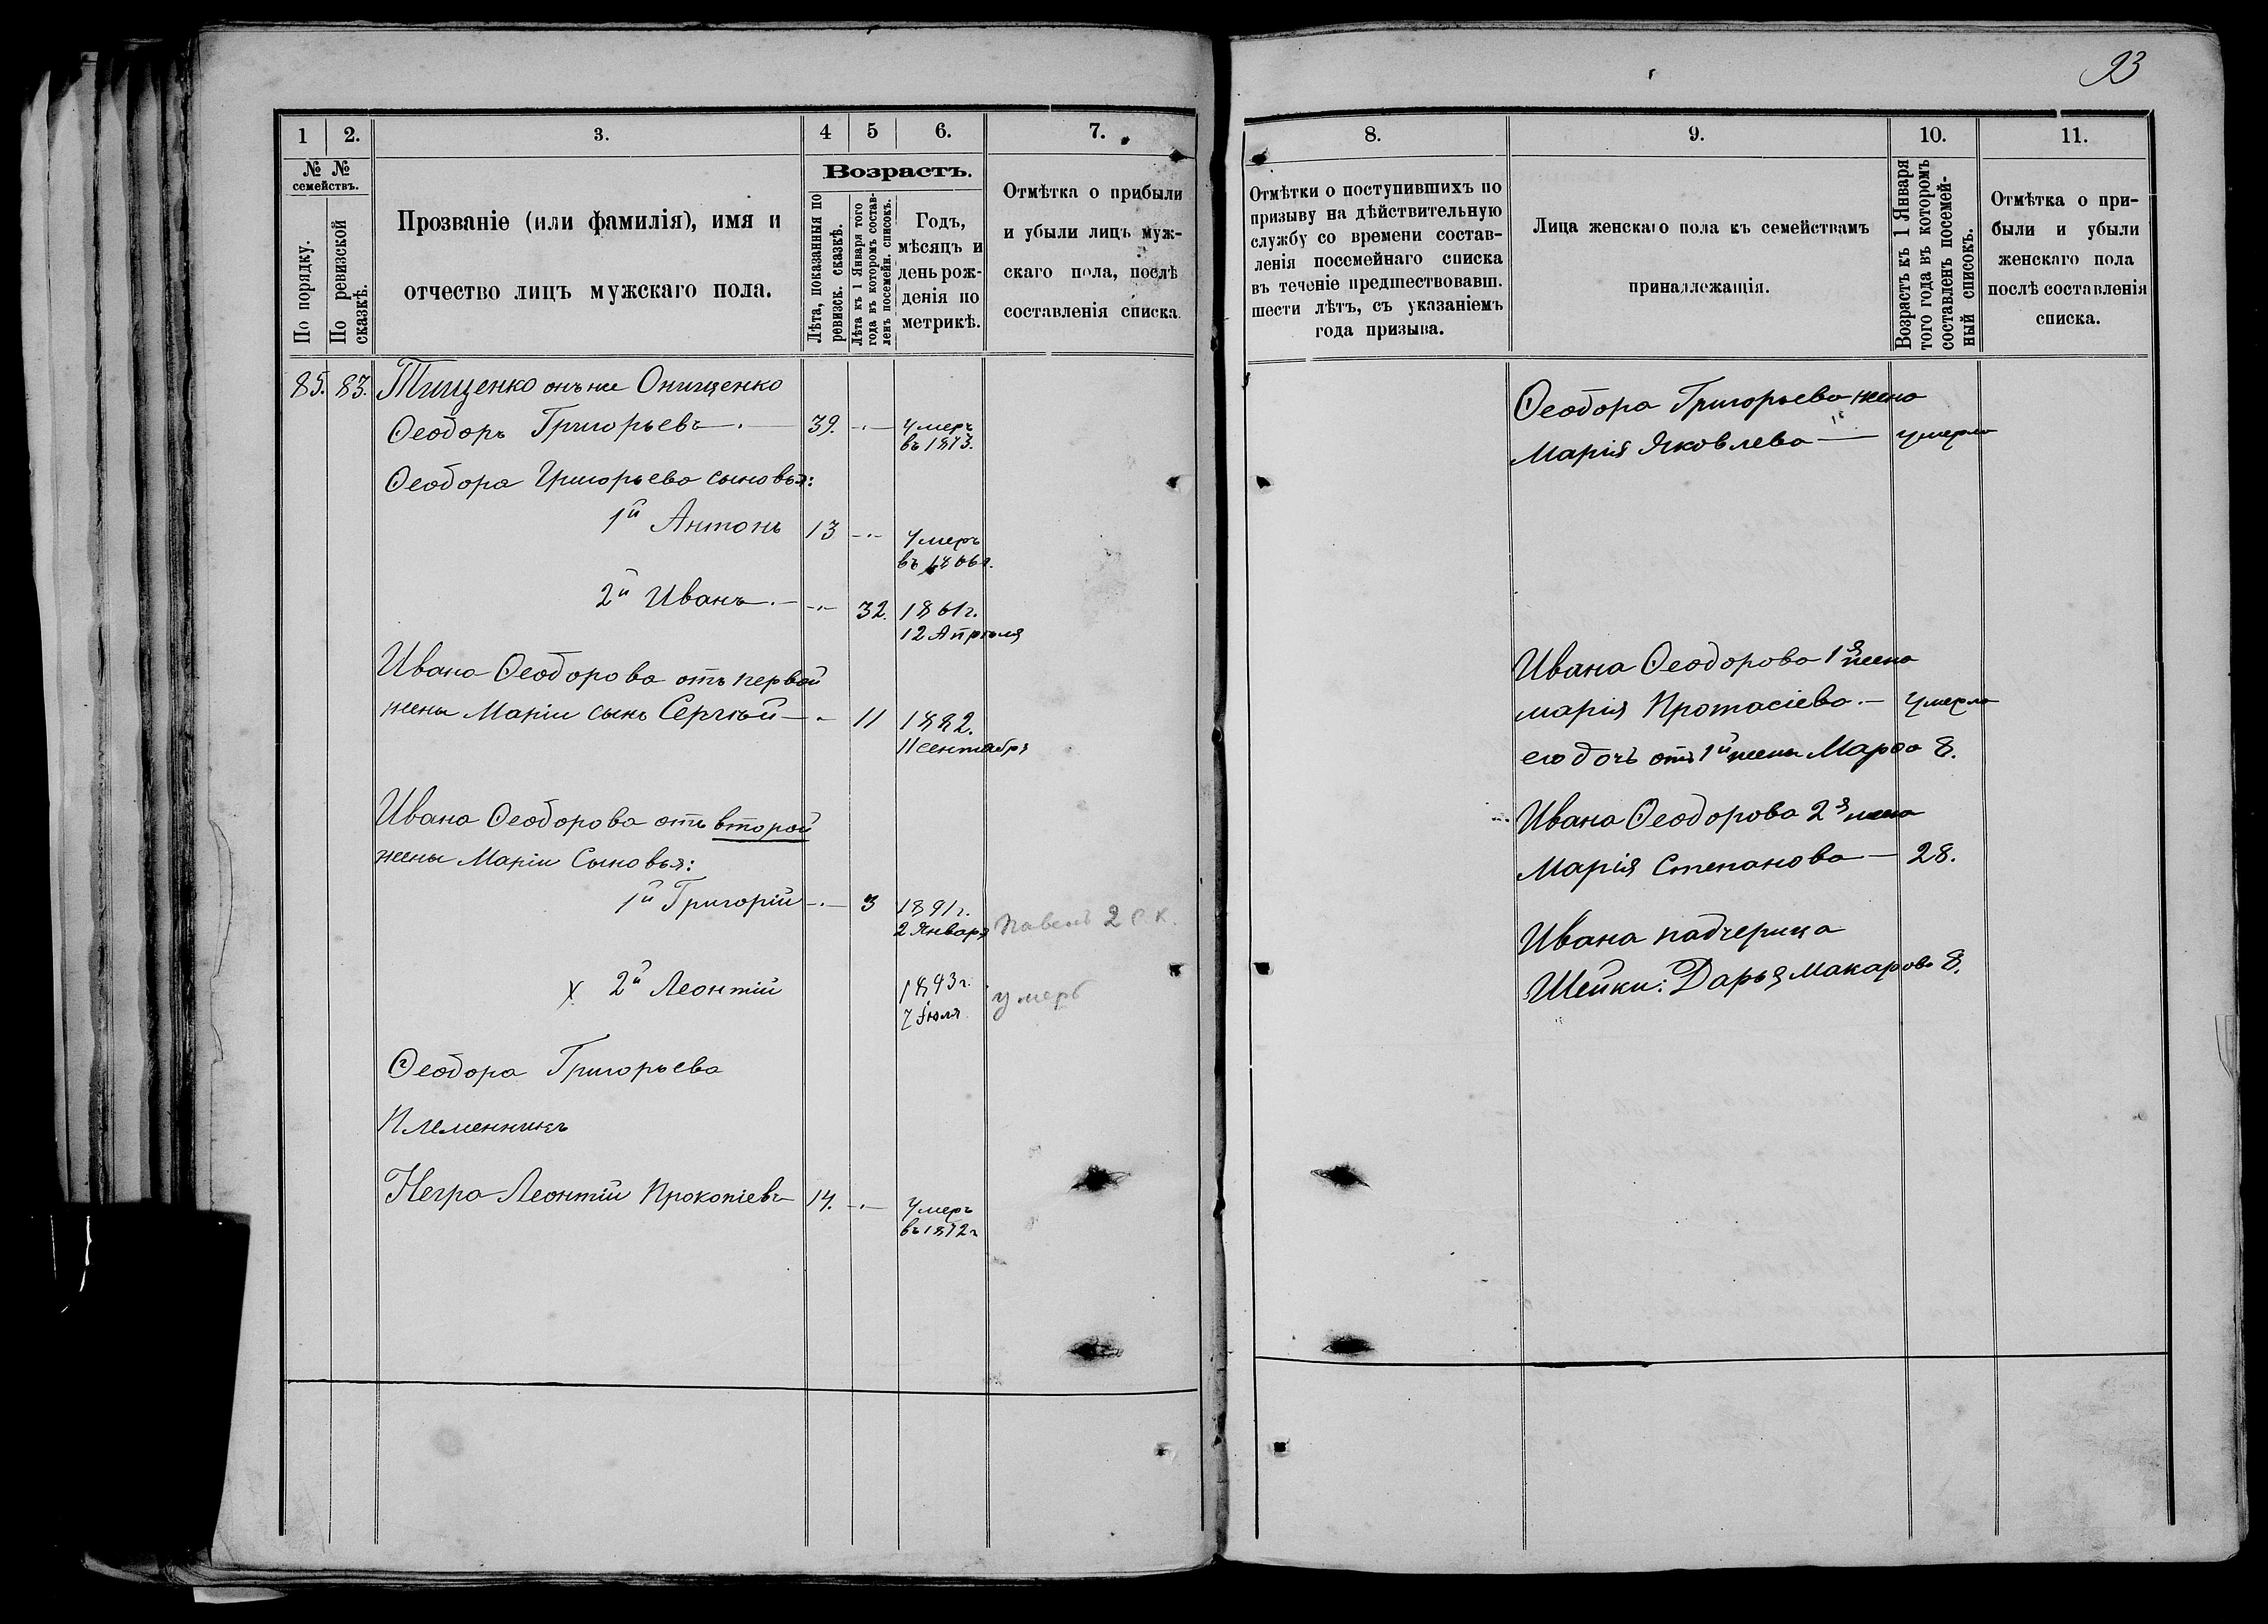 93
1 2. 3. 4 5 6. 7.
№ № семействъ.
По порядку.
По ревизской сказкѣ.
Прозваніе (или фамилія), имя и
отчество лицъ мужскаго пола.
Возрастъ.
Лѣта, показанныя по
ревизск. сказкѣ.
Лѣта къ 1 Января того
года въ которомъ состав-
ленъ посемейн. списокъ.
Годъ,
мѣсяцъ и
день рож-
денія по
метрикѣ.
Отмѣтка о прибыли
и убыли лицъ муж-
скаго пола, послѣ
составленія списка.
85. 83. Тищенко онъ же Онищенко
Ѳеодоръ Григорьевъ 39. Умеръ
въ 1873.
Ѳеодора Григорьева сыновья:
1й Антонъ 13 Умеръ
въ г.
2й Иванъ 32. 1861г.
12 Апрѣля
Ивана Ѳеодорова отъ первой
жены Маріи сынъ Сергѣй 11 1882.
11 сентября
Ивана Ѳеодорова отъ второй
жены Маріи Сыновья:
1й Григорій 3 1891г.
2 Января Павелъ 2
х 2й Леонтій 1893г. умеръ
7 Іюля
Ѳеодора Григорьева
Племенникъ
Негра Леонтій Прокопіевъ 14. Умеръ
въ 1872г
8. 9. 10. 11.
Отмѣтки о поступившихъ по
призыву на дѣйствительную
службу со времени состав-
ленія посемейнаго списка
въ теченіе предшествовавш.
шести лѣтъ, съ указаніемъ
года призыва.
Лица женскаго пола къ семействамъ
принадлежащія.
Возрастъ къ 1 Января
того года въ которомъ
составленъ посемей-
ный списокъ.
Отмѣтка о при-
были и убыли
женскаго пола
послѣ составленія
списка.
Ѳеодора Григорьева жена
Марія Яковлева умерла
Ивана Ѳеодорова 1я жена
Марія Протасіева. Умерла
его дочь отъ 1й жены Марѳа 8.
Ивана Ѳеодорова 2я жена
Марія Степанова 28.
Ивана падчерица
Шейки: Дарья Макарова 8.